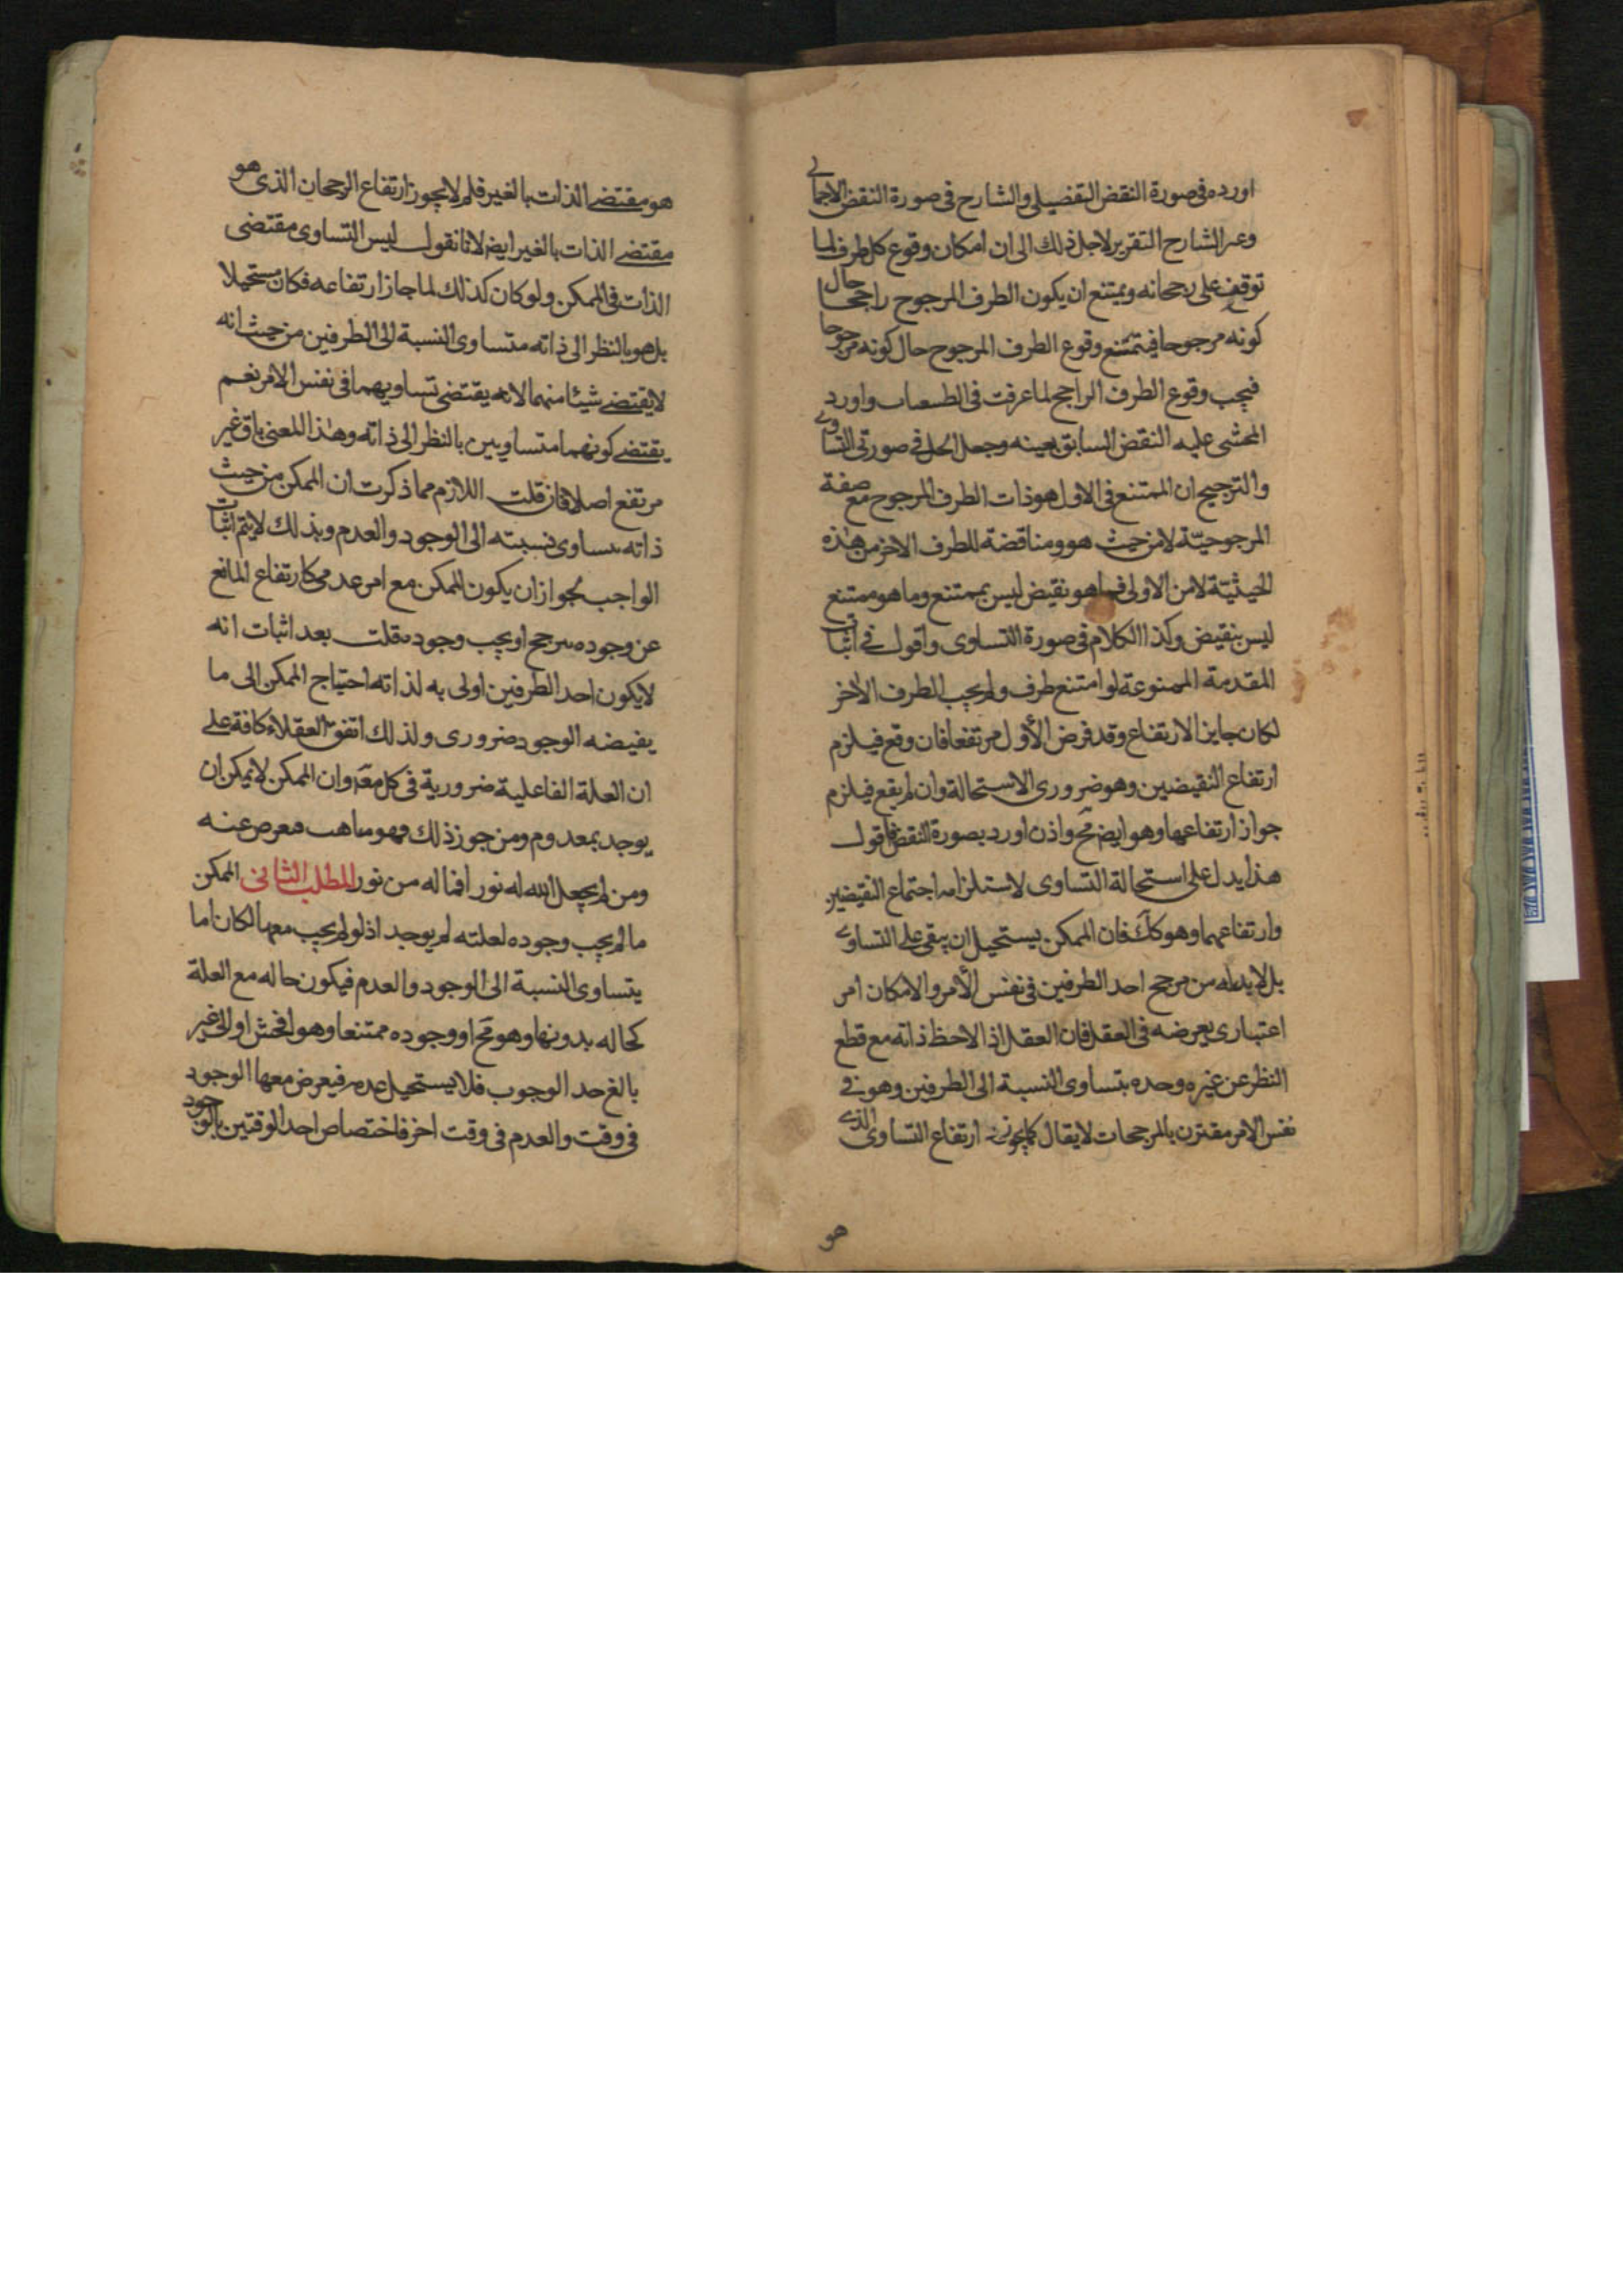 اورده فى صورة النقض التفصيلى والشارح فى صورة النقض الاجمالى
الشارح التقرير لاجل ذلك الى ان امكان وقوع كل طرف لما
توقف على رجحانه ويمتنع ان يكون الطرف المرجوح راجحا حال
كونه مرجوحا فيمتنع وقوع الطرف المرجوح حال كونه مرجوحا
فيجب وقوع الطرف الراجح لما عرفت فى واورد
المحشى عليه النقض السابق بعينه وجعل الحل فى صورتى التساوى
والترجيح ان الممتنع فى الاول هو ذات الطرف المرجوح مع صفة
المرجوحيّة لا من حيث هو ومناقضة للطرف الاخر من هذه
الحيثيّة لا من الاولى فما هو نقيض ليس بممتنع وما هو ممتنع
ليس بنقيض وكذا الكلام فى صورة التساوى واقول فى اثبات
المقدمة الممنوعة لو امتنع طرف ولم يجب الطرف الاخر
لكان جايز الارتفاع وقد فرض الأول مرتفعا فان وقع فيلزم
ارتفاع النقيضين وهو ضرورى الاستحالة وان لم يقع فيلزم
جواز ارتفاعها وهو ايض مح واذن اورد بصورة النقض فاقول
هذا يدل على استحالة التساوى لاستلزامه اجتماع النقيضين
وارتفاعهما وهو كك فان الممكن يستحيل ان يبقى على التساوى
بل لابد له من مرجح احد الطرفين فى نفس الأمر والامكان امر
اعتبارى يعرضه فى العقل فان العقل اذا لاحظ ذاته مع قطع
النظر عن غيره وحده بتساوى النسبة الى الطرفين وهو فى
نفس الامر مقترن بالمرجحات لا يقال كما يجوز ارتفاع التساوى الذى
هو
هو مقتضى الذات بالغير فلم لا يجوز ارتفاع الرجحان الذى هو
مقتضى الذات بالغير ايض لانا نقول ليس التساوى مقتضى
الذات فى الممكن ولو كان كذلك لما جاز ارتفاعه فكان مستحيلا
بل هو بالنظر الى ذاته متساوى النسبة الى الطرفين من حيث انه
لا يقتضى شيئا منهما لا انه يقتضى تساويهما فى نفس الامر نعم
يقتضى كونهما متساويين بالنظر الى ذاته وهذا المعنى باق غير
مرتفع اصلا فان قلت اللازم مما ذكرت ان الممكن من حيث
ذاته يساوى نسبته الى الوجود والعدم وبذلك لا يتم اثبات
الواجب لجواز ان يكون الممكن مع امر عدمى كارتفاع المانع
عن وجوده يترجح او يجب وجوده قلت بعد اثبات انه
لا يكون احد الطرفين اولى به لذاته احتياج الممكن الى ما
يفيضه الوجود ضرورى ولذلك اتفق العقلاء كافة على
ان العلة الفاعلية ضرورية فى كل معد وان الممكن لا يمكن ان
يوجد بمعدوم ومن جوز ذلك فهو عنه
ومن لم يجعل الله له نورا فما له من نور المطلب الثانى الممكن
ما لم يجب وجوده لعلته لم يوجد اذ لو لم يجب معها لكان اما
يتساوى النسبة الى الوجود والعدم فيكون حاله مع العلة
كحاله بدونها وهو مح او وجوده ممتنعا وهو افحش او اولى غير
بالغ حد الوجوب فلا يستحيل عدمه فيعرض معها الوجود
فى وقت والعدم فى وقت اخر فاختصاص احد الوقتين بالوجود